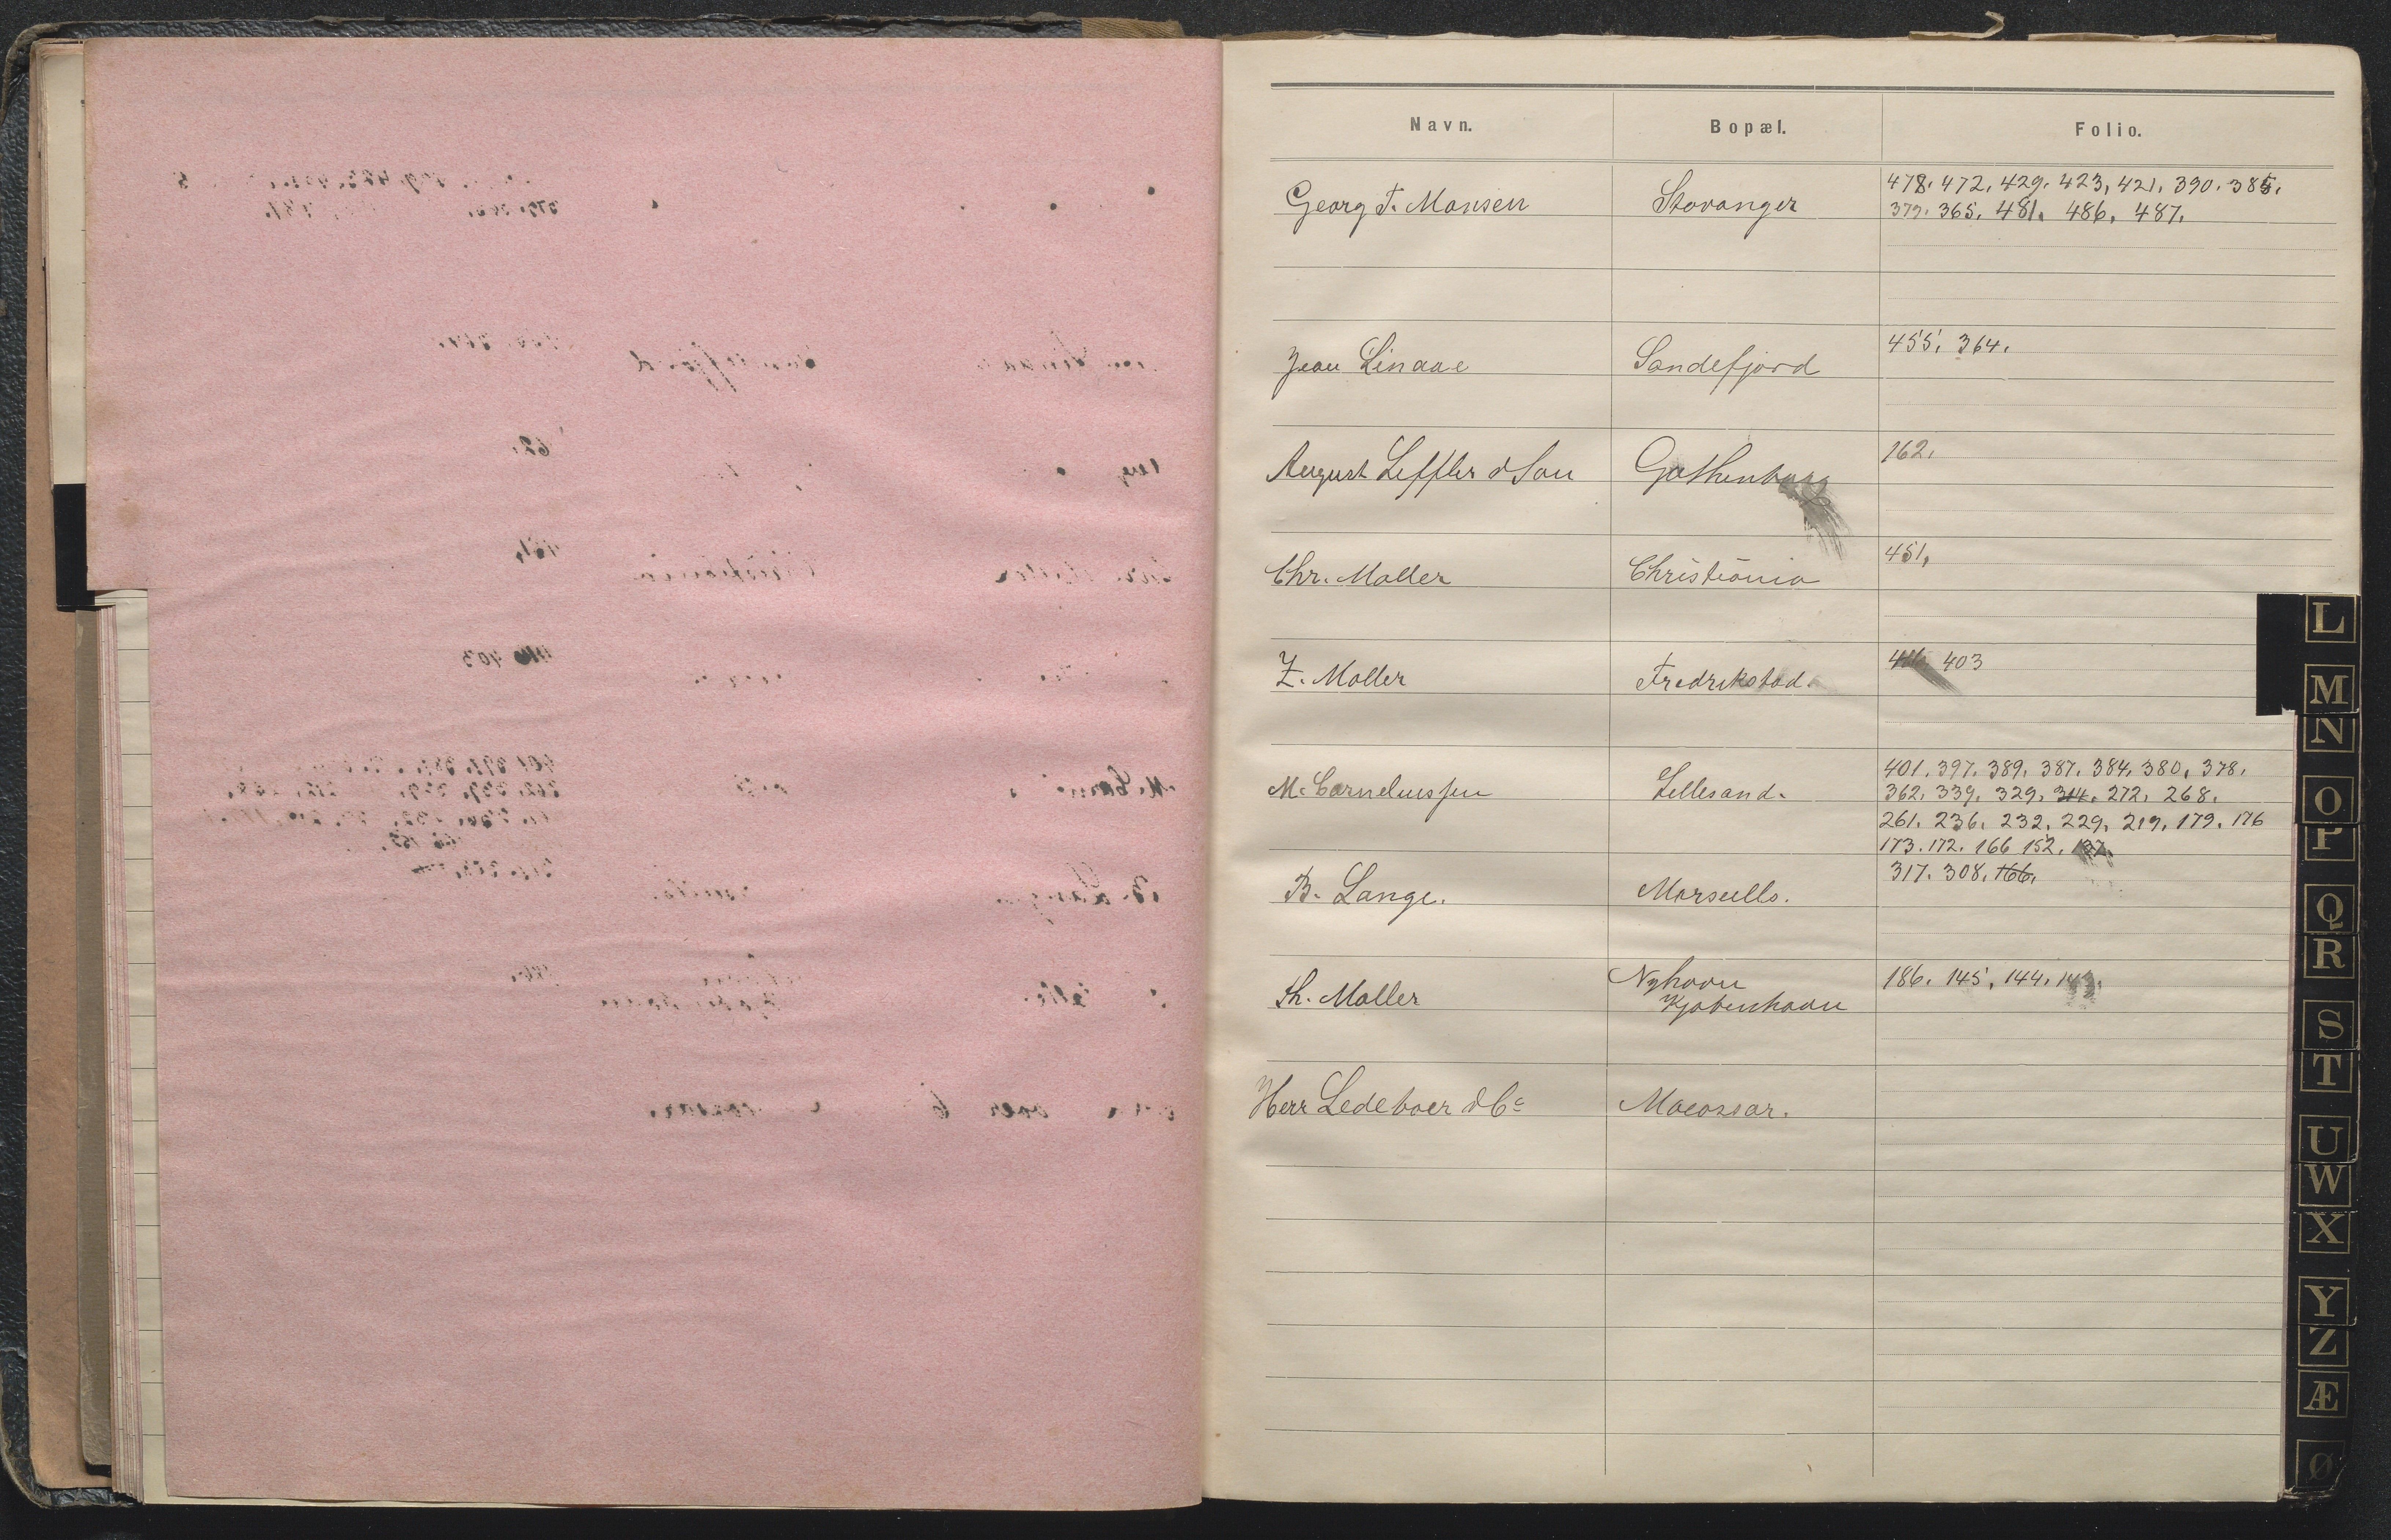 Navn. Bopæl. Folio.
Georg F. Monsen Stavanger 478. 472. 429. 423, 421. 390. 385.
379. 365. 481. 486. 487.
Jean Linaae Sandefjord 455. 364.
August Leffler & Son Gothenburg 162.
Chr. Moller Christiania 451.
Z. Moller Fredrikstad. 403
M. Corneliussen Lillesand. 401. 397. 389. 387. 384. 380. 378.
362. 339. 329. 314. 272. 268.
261. 236. 232. 229. 219. 179. 176
173. 172. 166 152. 137.
B. Lange. Marseille. 317. 308. 166.
Th. Moller Nyhavn
Kjøbenhavn 186. 145, 144. 143.
Herr Ledeboer & Co Macassar.
L
M
N
O
P
Q
R
S
T
U
W
X
Y
Z
Æ
Ø